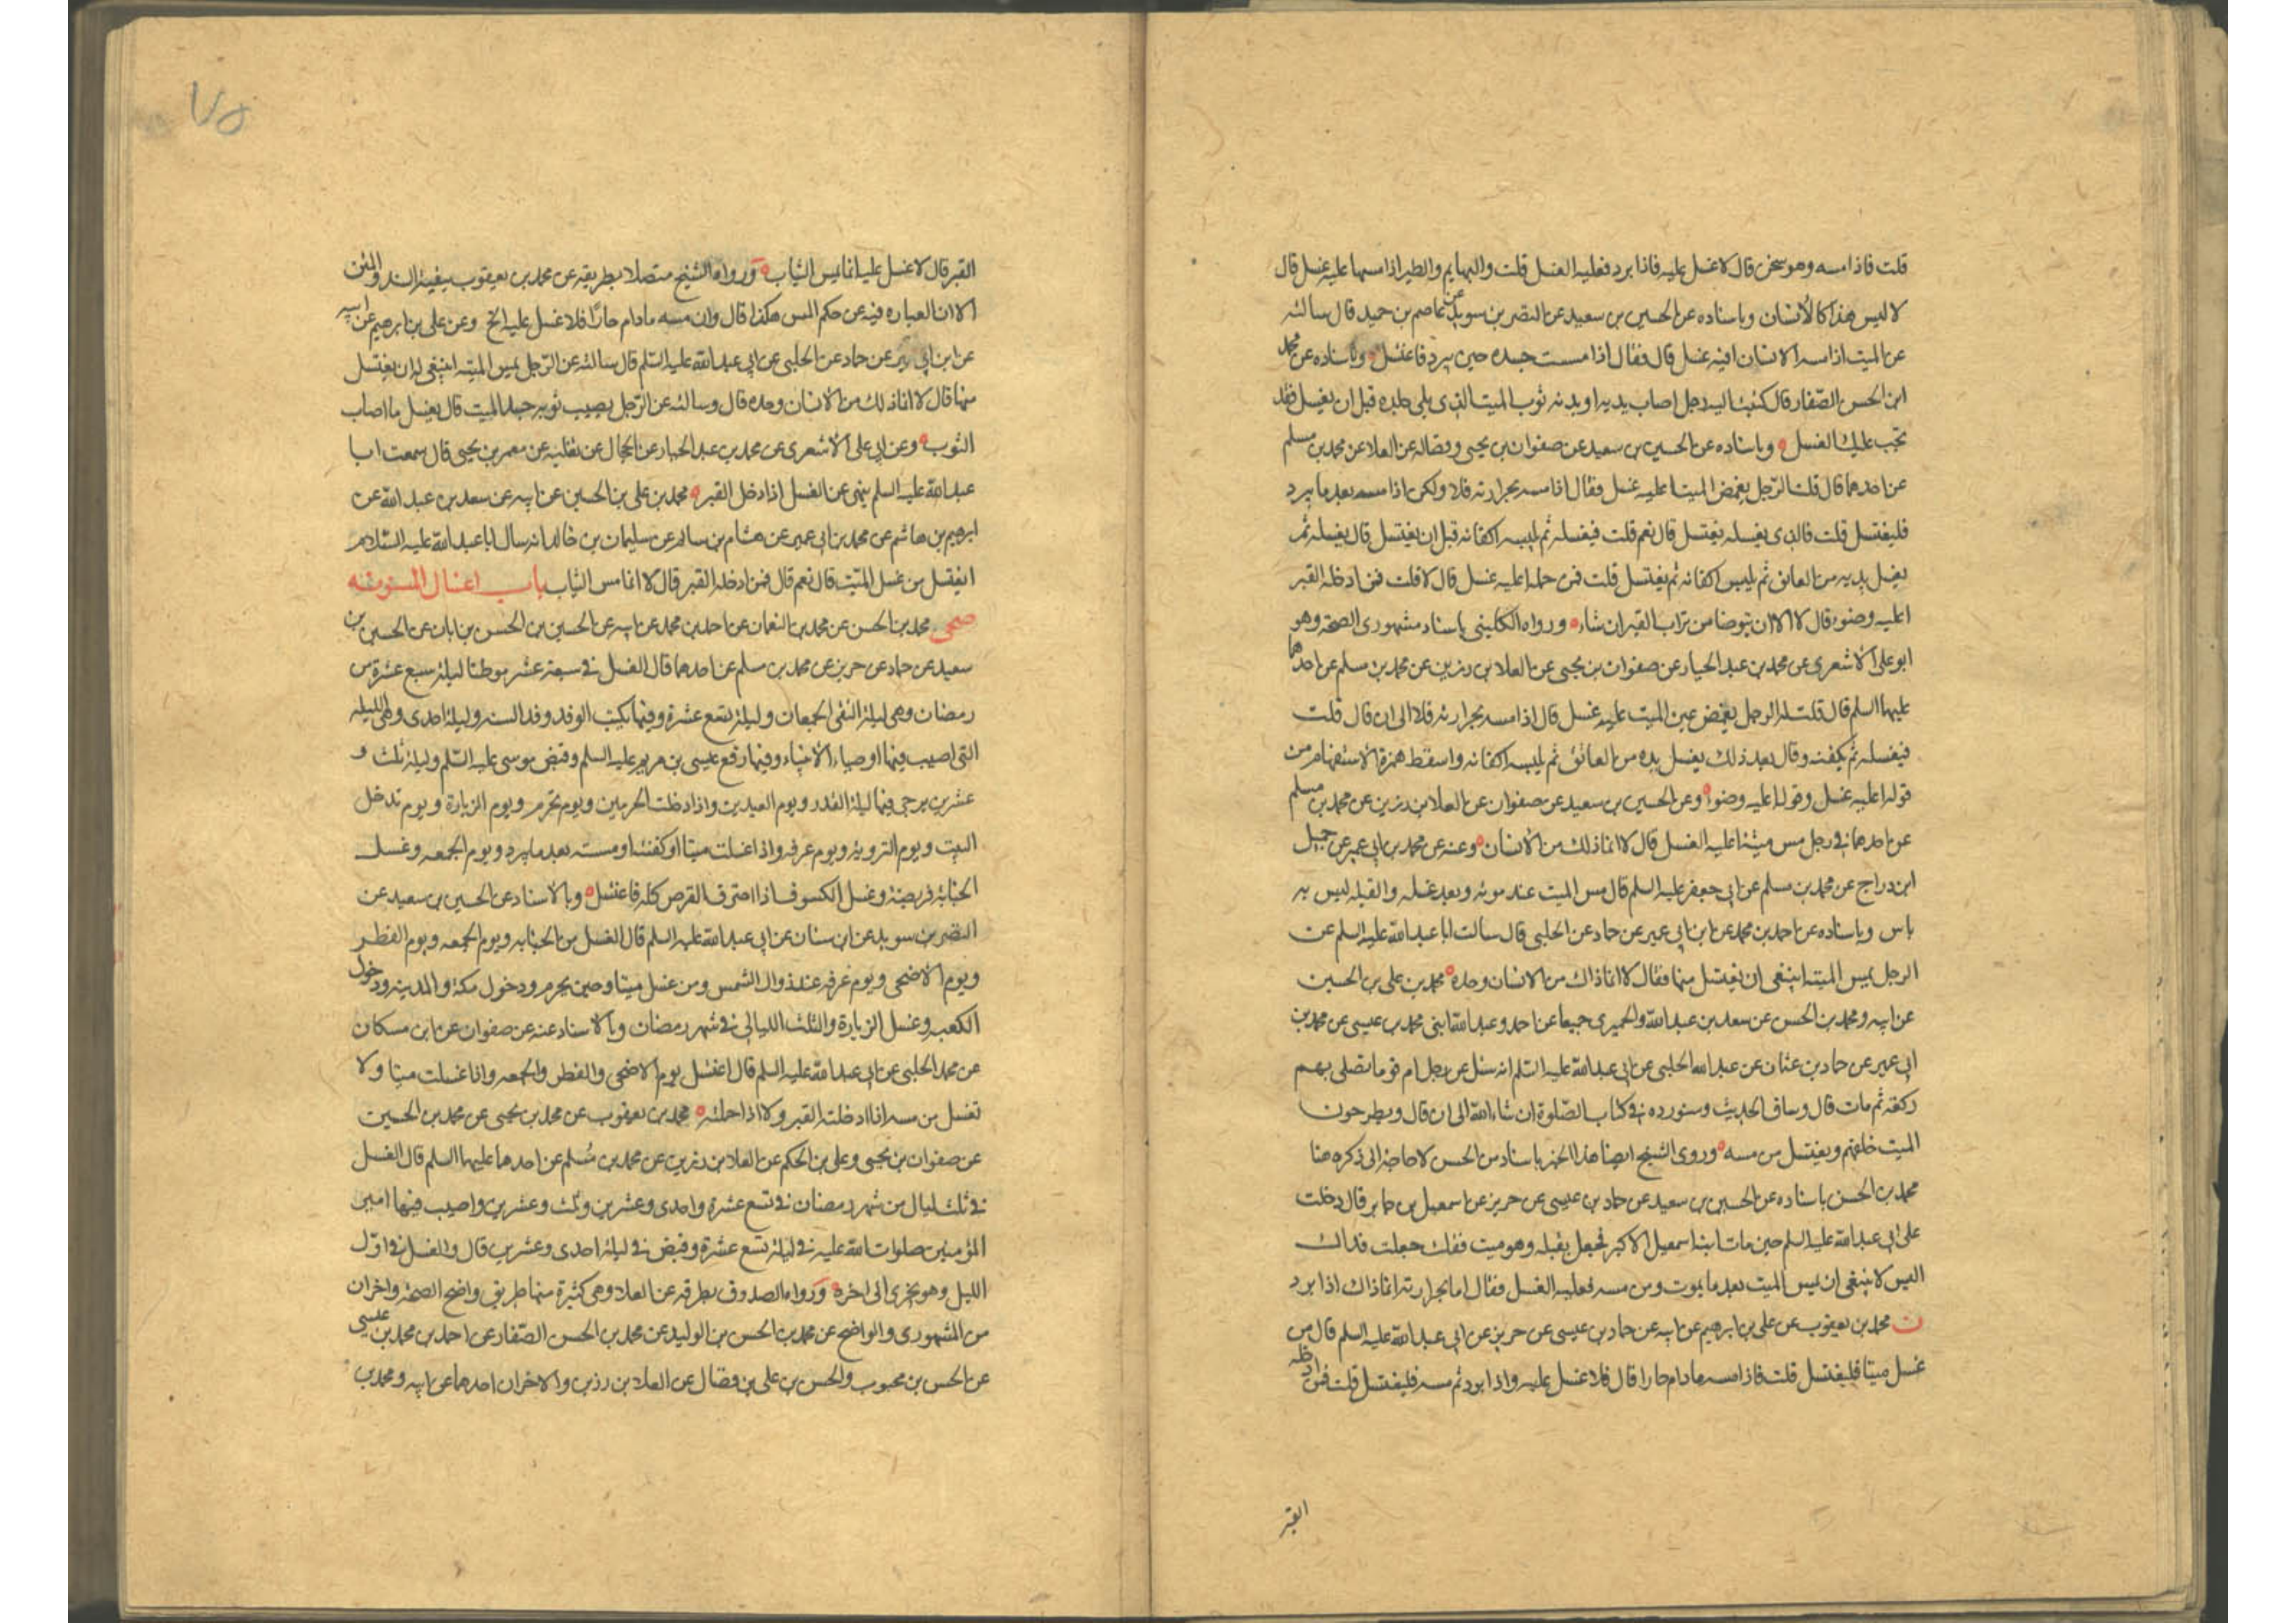 قلت فاذا مسه وهو سخن قال لا غسل عليه فاذا برد فعليه الغسل قلت والبهايم والطير اذا مسها عليه غسل قال
لا ليس هذا كالانسان وباسناده عن الحسين بن سعيد عن النضر بن سويد عن عاصم بن حميد قال سالته
عن الميت اذا مسه الانسان افيه غسل قال فقال اذا مسست جسده حين يبرد فاغتسل وباسناده عن محمد
ابن الحسن الصفار قال كتبت اليه رجل اصاب يديه او بدنه ثوب الميت الذى يلى جلده قبل ان يغسل فقد
تجب عليك الغسل وباسناده عن الحسين بن سعيد عن صفوان بن يحيى وفضاله عن العلا عن محمد بن مسلم
عن احدهما قال قلت الرجل يغمض الميت اعليه غسل فقال اذا مسه بحرارته فلا ولكن اذا مسه بعد ما يبرد
فليغتسل قلت فالذى يغسله يغتسل قال نعم قلت فيغسله ثم يلبسه اكفانه قبل ان يغتسل قال يغسله ثم
يغسل يديه من العاتق ثم يلبس اكفانه ثم يغتسل قلت فمن حمله اعليه غسل قال لا قلت فمن ادخله القبر
اعليه وضوء قال لا الا ان يتوضا من تراب القبر ان شاء ورواه الكلينى باسناد مشهورى الصحة وهو
ابو على الاشعرى عن محمد بن عبد الجبار عن صفوان بن يحيى عن العلا بن رزين عن محمد بن مسلم عن احدهما
عليهما السلم قال قلت له الرجل يغمض عين الميت عليه غسل قال اذا مسه بحرارته فلا الى ان قال قلت
فيغسله ثم يكفنه وقال بعد ذلك يغسل يده من العاتق ثم يلبسه اكفانه واسقط همزة الاستفهام من
قوله اعليه غسل وقوله اعليه وضوا وعن الحسين بن سعيد عن صفوان عن العلا بن رزين عن محمد بن مسلم
عن احدهما فى رجل مس ميتة اعليه الغسل قال لا انما ذلك من الانسان وعنه عن محمد بن ابى عمير عن جميل
ابن دراج عن محمد بن مسلم عن ابى جعفر عليه السلم قال مس الميت عند موته وبعد غسله والقبله ليس به
باس وباسناده عن احمد بن محمد عن ابن ابى عمير عن حماد عن الحلبى قال سالت ابا عبد الله عليه السلم عن
الرجل يمس الميتة اينبغى ان يغتسل منها فقال لا انما ذاك من الانسان وحده محمد بن على بن الحسين
عن ابيه ومحمد بن الحسن عن سعد بن عبد الله والحميرى جميعا عن احمد وعبد الله ابنى محمد بن عيسى عن محمد بن
ابى عمير عن حماد بن عثمان عن عبد الله الحلبى عن ابى عبد الله عليه السلم انه سئل عن رجل ام قوما فصلى بهم
ركعة ثم مات قال وساق الحديث وسنورده فى كتاب الصلوة ان شاء الله الى ان قال ويطرحون
الميت خلفهم ويغتسل من مسه وروى الشيخ ايضا هذا الخبر باسناد من الحسن لا حاجة الى ذكره هنا
محمد بن الحسن باسناده عن الحسين بن سعيد عن حماد بن عيسى عن حريز عن اسمعيل بن جابر قال دخلت
على ابى عبد الله عليه السلم حين مات ابنه اسمعيل الاكبر فجعل يقبله وهو ميت فقلت جعلت فداك
اليس لا ينبغى ان يمس الميت بعد ما يموت ومن مسه فعليه الغسل فقال اما بحرارته انما ذاك اذا برد
ن محمد بن يعقوب عن على بن ابرهيم عن ابيه عن حماد بن عيسى عن حريز عن ابى عبد الله عليه السلم قال من
غسل ميتا فليغتسل قلت فاذا مسه مادام حارا قال فلا غسل عليه واذا برد ثم مسه فليغتسل قلت فمن ادخله
القبر
٧٥
القبر قال لا غسل عليه انما يمس الثياب ورواه الشيخ متصلا بطريقه عن محمد بن يعقوب ببقية السند والمتن
الا ان العباره فيه عن حكم المس هكذا قال وان مسه مادام حارا فلا غسل عليه الخ وعن على بن ابرهيم عن ابيه
عن ابن ابى عمير عن حماد عن الحلبى عن ابى عبد الله عليه السلم قال سالته عن الرجل يمس الميتة اينبغى له ان يغتسل
منها قال لا انما ذلك من الانسان وحده قال وسالته عن الرجل يصيب ثوبه جسد الميت قال يغسل ما اصاب
الثوب وعن ابى على الاشعرى عن محمد بن عبد الجبار عن الحجال عن ثعلبه عن معمر بن يحيى قال سمعت ابا
عبد الله عليه السلم ينهى عن الغسل اذا دخل القبر محمد بن على بن الحسين عن ابيه عن سعد بن عبد الله عن
ابرهيم بن هاشم عن محمد بن ابى عمير عن هشام بن سالم عن سليمان بن خالد انه سال ابا عبد الله عليه السلام
ايغتسل من غسل الميت قال نعم قال فمن ادخله القبر قال لا انما مس الثياب باب اغسال المسنونه
صحى محمد بن الحسن عن محمد بن النعمان عن احمد بن محمد عن ابيه عن الحسين بن الحسن بن ابان عن الحسين بن
سعيد عن حماد عن حريز عن محمد بن مسلم عن احدهما قال الغسل فى سبعة عشر موطنا ليلة سبع عشرة من
رمضان وهى ليلة التقى الجمعان وليلة تسع عشرة وفيها يكتب الوفد وفد السنه وليلة احدى وهى الليله
التى اصيب فيها اوصياء الانبياء وفيها رفع عيسى بن مريم عليه السلم وقبض موسى عليه السلم وليلة ثلث و
عشرين يرجى فيها ليلة القدر ويوم العيدين واذا دخلت الحرمين ويوم تحرم ويوم الزيارة ويوم تدخل
البيت ويوم الترويه ويوم عرفه واذا غسلت ميتا او كفنته او مسته بعد ما يبرد ويوم الجمعه وغسل
الجنابة فريضة وغسل الكسوف اذا احترق القرص كله فاغتسل وبالاسناد عن الحسين بن سعيد عن
النضر بن سويد عن ابن سنان عن ابى عبد الله عليه السلم قال الغسل من الجنابه ويوم الجمعه ويوم الفطر
ويوم الاضحى ويوم عرفه عند زوال الشمس ومن غسل ميتا وحين يحرم ودخول مكة والمدينه ودخول
الكعبه وغسل الزيارة والثلث الليالى فى شهر رمضان وبالاسناد عنه عن صفوان عن ابن مسكان
عن محمد الحلبى عن ابى عبد الله عليه السلم قال اغتسل يوم الاضحى والفطر والجمعه واذا غسلت ميتا ولا
تغتسل من مسه اذا ادخلته القبر ولا اذا حملته محمد بن يعقوب عن محمد بن يحيى عن محمد بن الحسين
عن صفوان بن يحيى وعلى بن الحكم عن العلا بن رزين عن محمد بن مسلم عن احدهما عليهما السلم قال الغسل
فى ثلث ليال من شهر رمضان فى تسع عشرة واحدى وعشرين وثلث وعشرين واصيب فيها امير
المؤمنين صلوات الله عليه فى ليلة تسع عشرة وقبض فى ليلة احدى وعشرين قال والغسل فى اول
الليل وهو يجزى الى اخره ورواه الصدوق بطرقه عن العلا وهى كثيرة منها طريق واضح الصحة واخران
من المشهورى والواضح عن محمد بن الحسن بن الوليد عن محمد بن الحسن الصفار عن احمد بن محمد بن عيسى
عن الحسن بن محبوب والحسن بن على بن فضال عن العلا بن رزين والاخران احدهما عن ابيه ومحمد بن